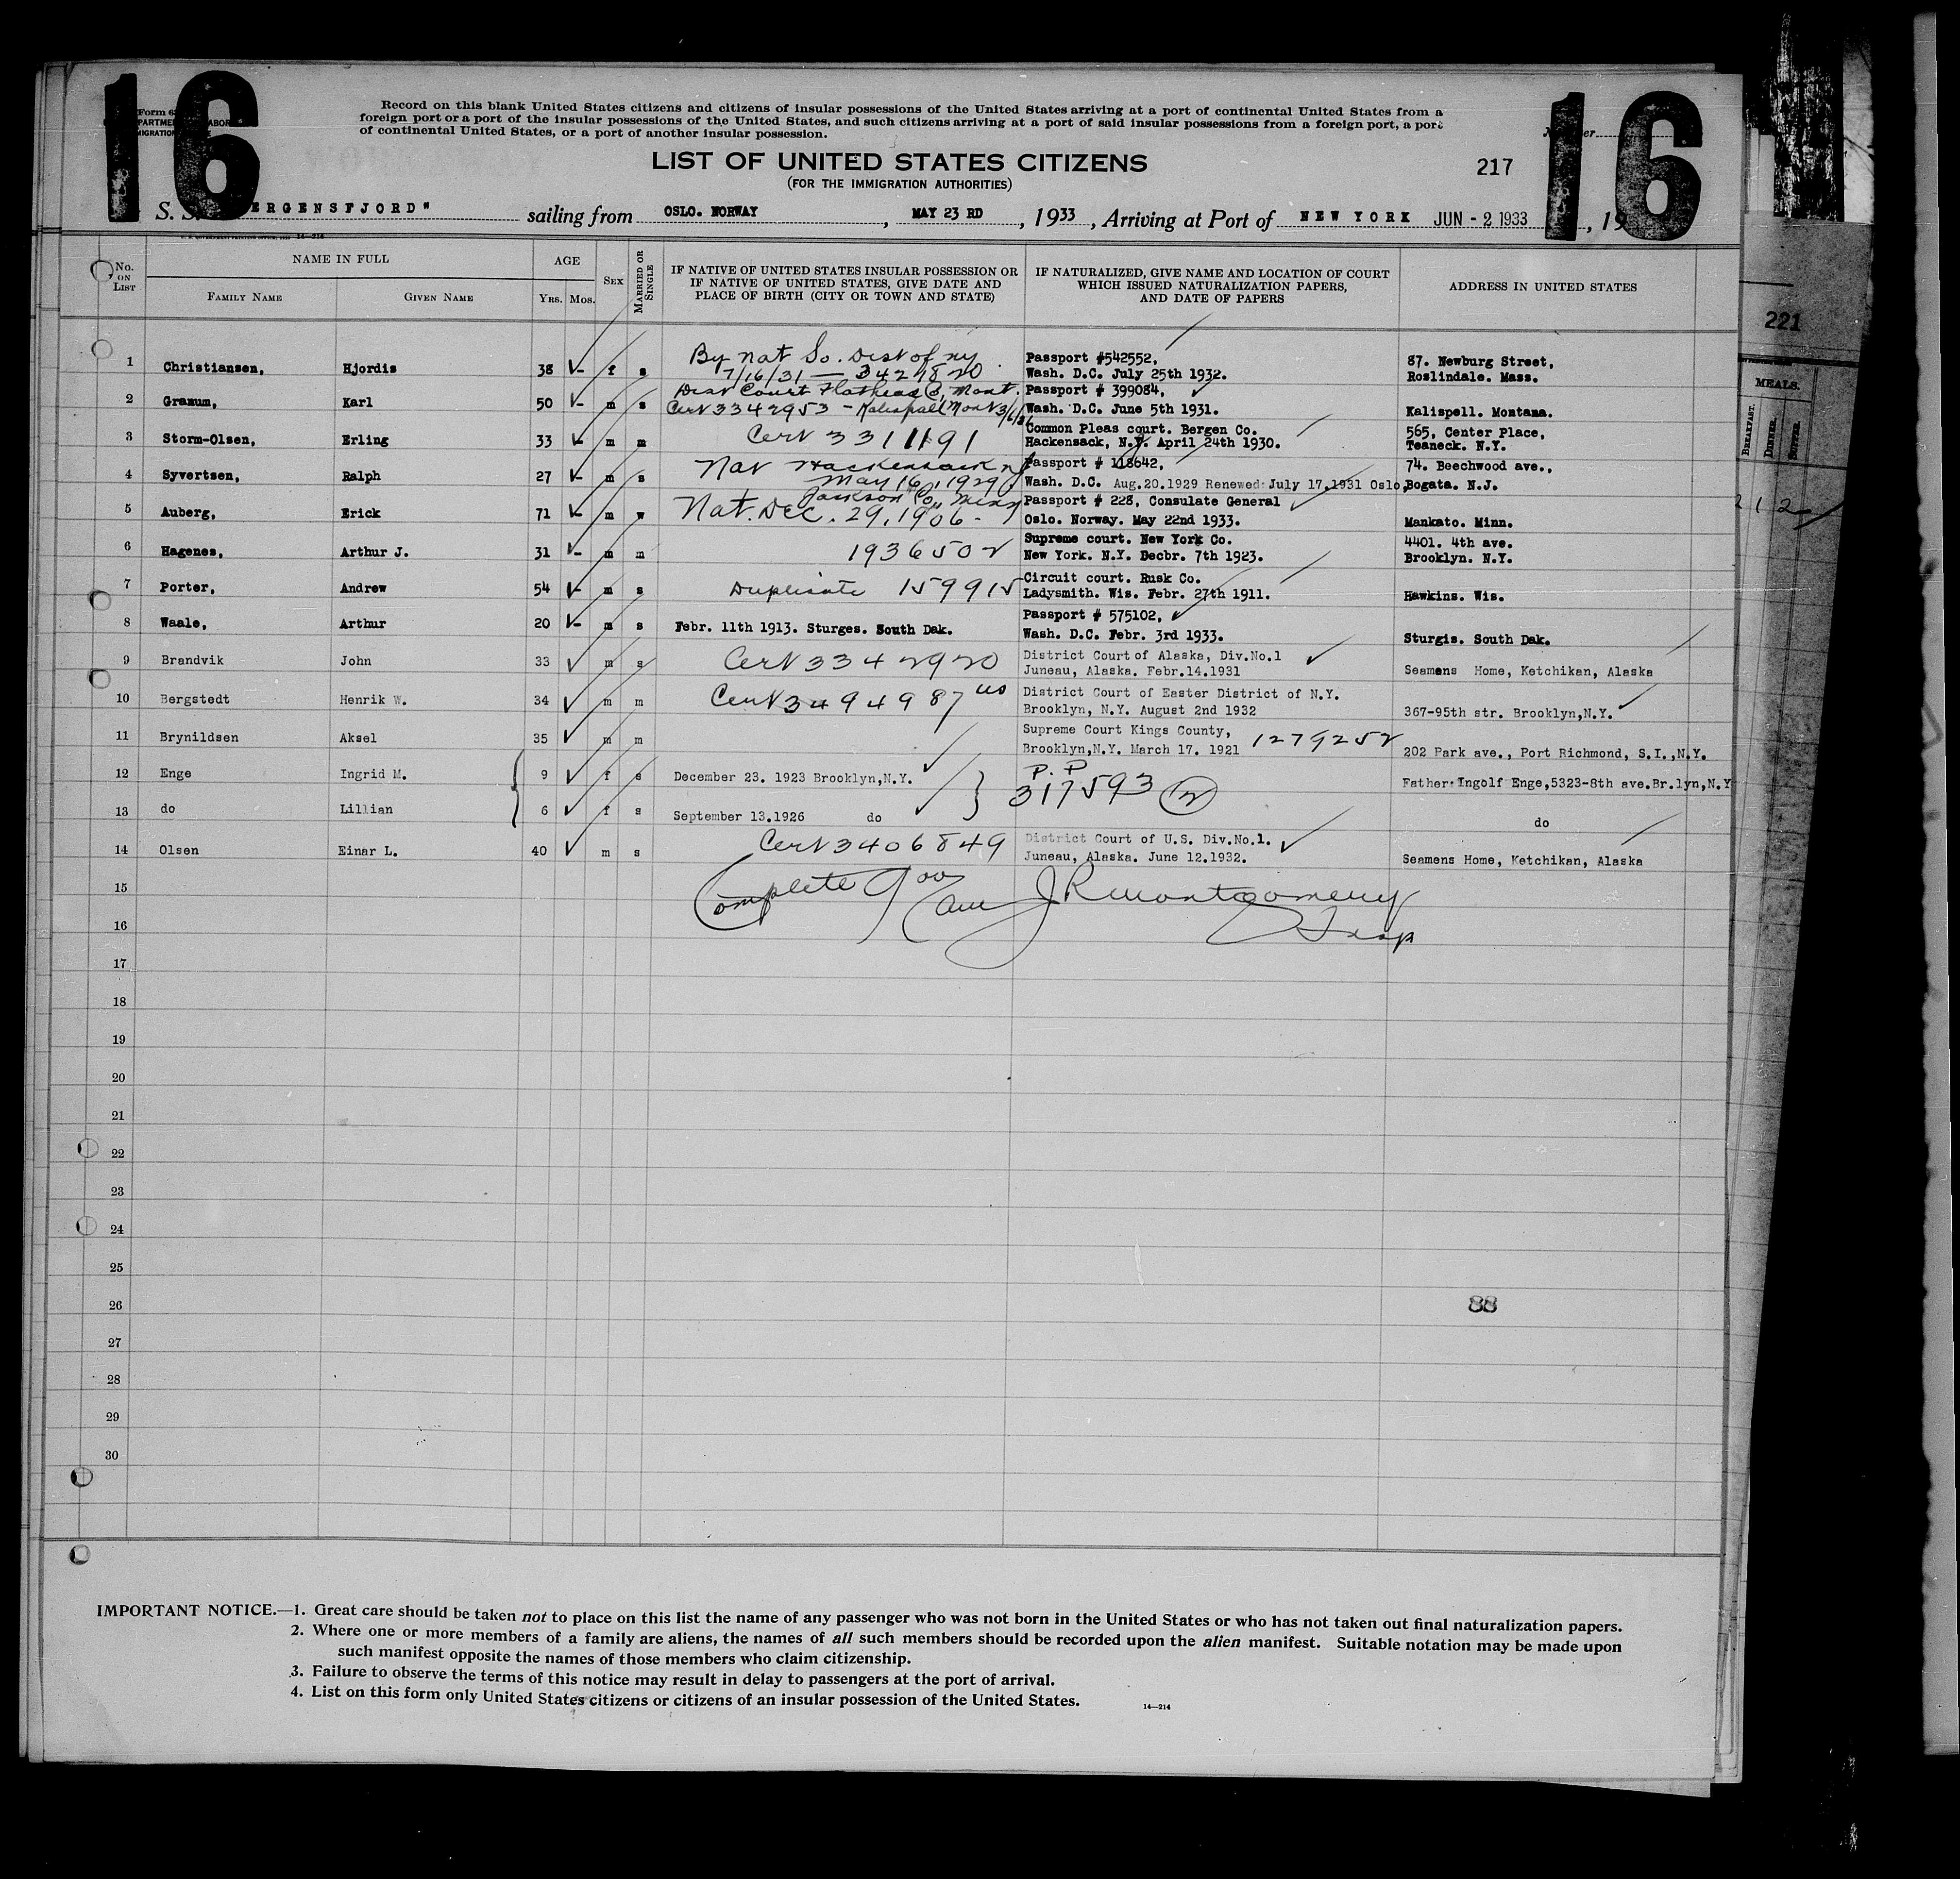 16
16
Form 6
Record on this blank United States citizens and citizens of insular possessions of the United States arriving at a port of continental United States from a
foreign port or a port of the insular possessions of the United States, and such citizens arriving at a port of said insular possessions from a foreign port, a port
of continental United States, or a port of another insular possession.
LIST OF UNITED STATES CITIZENS
(FOR THE IMMIGRATION AUTHORITIES)
217
S. S. ERGENSFJORD" sailing from OSLO. NORWAY, MAY 23 RD, 1933, Arriving at Port of NEW YORK JUN - 2 1933, 19
No. ON LIST
NAME IN FULL
FAMILY NAME
GIVEN NAME
AGE
YRS.
MOS.
SEX
MARRIED OR SINGLE
IF NATIVE OF UNITED STATES INSULAR POSSESSION OR
IF NATIVE OF UNITED STATES, GIVE DATE AND
PLACE OF BIRTH (CITY OR TOWN AND STATE)
IF NATURALIZED, GIVE NAME AND LOCATION OF COURT
WHICH ISSUED NATURALIZATION PAPERS,
AND DATE OF PAPERS
ADDRESS IN UNITED STATES
1 Christiansen, Hjordis 38 f s By Nat So. Dist of NY 7/16/31 — 3427820 Passport #542552, Wash. D.C. July 25th 1932. 87. Newburg Street, Roslindale. Mass.
2 Granum, Karl 50 m s Dist Court Flathead Co, Mont. Cert 3342953 - Kalispell Mont Passport # 399084, Wash. D.C. June 5th 1931. Kalispell. Montana.
3 Storm-Olsen, Erling 33 m m Cert 3311191 Common Pleas court. Bergen Co. Hackensack, N.J. April 24th 1930. 565, Center Place, Teaneck. N.Y.
4 Syvertsen, Ralph 27 m s Nat Hackensack NJ May 16, 1929 Passport # 118642, Wash. D.C. Aug.20.1929 Renewed: July 17.1931 Oslo, 74. Beechwood ave., Bogata. N.J.
5 Auberg, Erick 71 m w Jackson Co, Minn Nat. Dec. 29, 1906. - Passport # 228, Consulate General Oslo. Norway. May 22nd 1933. Mankato. Minn.
6 Hagenes, Arthur J. 31 m m 1936502 Supreme court. New York Co. New York. N.Y. Decbr. 7th 1923. 4401. 4th ave. Brooklyn. N.Y.
7 Porter, Andrew 54 m s Duplicate 159915 Circuit court. Rusk Co. Ladysmith. Wis. Febr. 27th 1911. Hawkins. Wis.
8 Waale, Arthur 20 m s Febr. 11th 1913. Sturges. South Dak. Passport # 575102, Wash. D.C. Febr. 3rd 1933. Sturgis. South Dak.
9 Brandvik John 33 m s Cert 3342920 District Court of Alaska, Div.No.1 Juneau, Alaska. Febr.14.1931 Seamens Home, Ketchikan, Alaska
10 Bergstedt Henrik W. 34 m m Cert 3494987 District Court of Easter District of N.Y. Brooklyn, N.Y. August 2nd 1932 367-95th str. Brooklyn,N.Y.
11 Brynildsen Aksel 35 m m Supreme Court Kings County, Brooklyn,N.Y. March 17. 1921 1279252 202 Park ave., Port Richmond, S.I.,N.Y.
12 Enge Ingrid M. 9 f s December 23. 1923 Brooklyn,N.Y. P. P 317593 (2) Father: Ingolf Enge,5323-8th ave.Br.lyn,N.Y
13 do Lillian 6 f s September 13.1926 do do
14 Olsen Einar L. 40 m s Cert 3406849 District Court of U.S. Div.No.1. Juneau, Alaska. June 12.1932. Seamens Home, Ketchikan, Alaska
15 Complete J R Montgomery
16 Insp
17
18
19
20
21
22
23
24
25
26 88
27
28
29
30
IMPORTANT NOTICE.—1. Great care should be taken not to place on this list the name of any passenger who was not born in the United States or who has not taken out final naturalization papers.
2. Where one or more members of a family are aliens, the names of all such members should be recorded upon the alien manifest. Suitable notation may be made upon
such manifest opposite the names of those members who claim citizenship.
3. Failure to observe the terms of this notice may result in delay to passengers at the port of arrival.
4. List on this form only United States citizens or citizens of an insular possession of the United States.
14—214
221
MEALS.
BREAKFAST.
DINNER.
SUPPER.
212